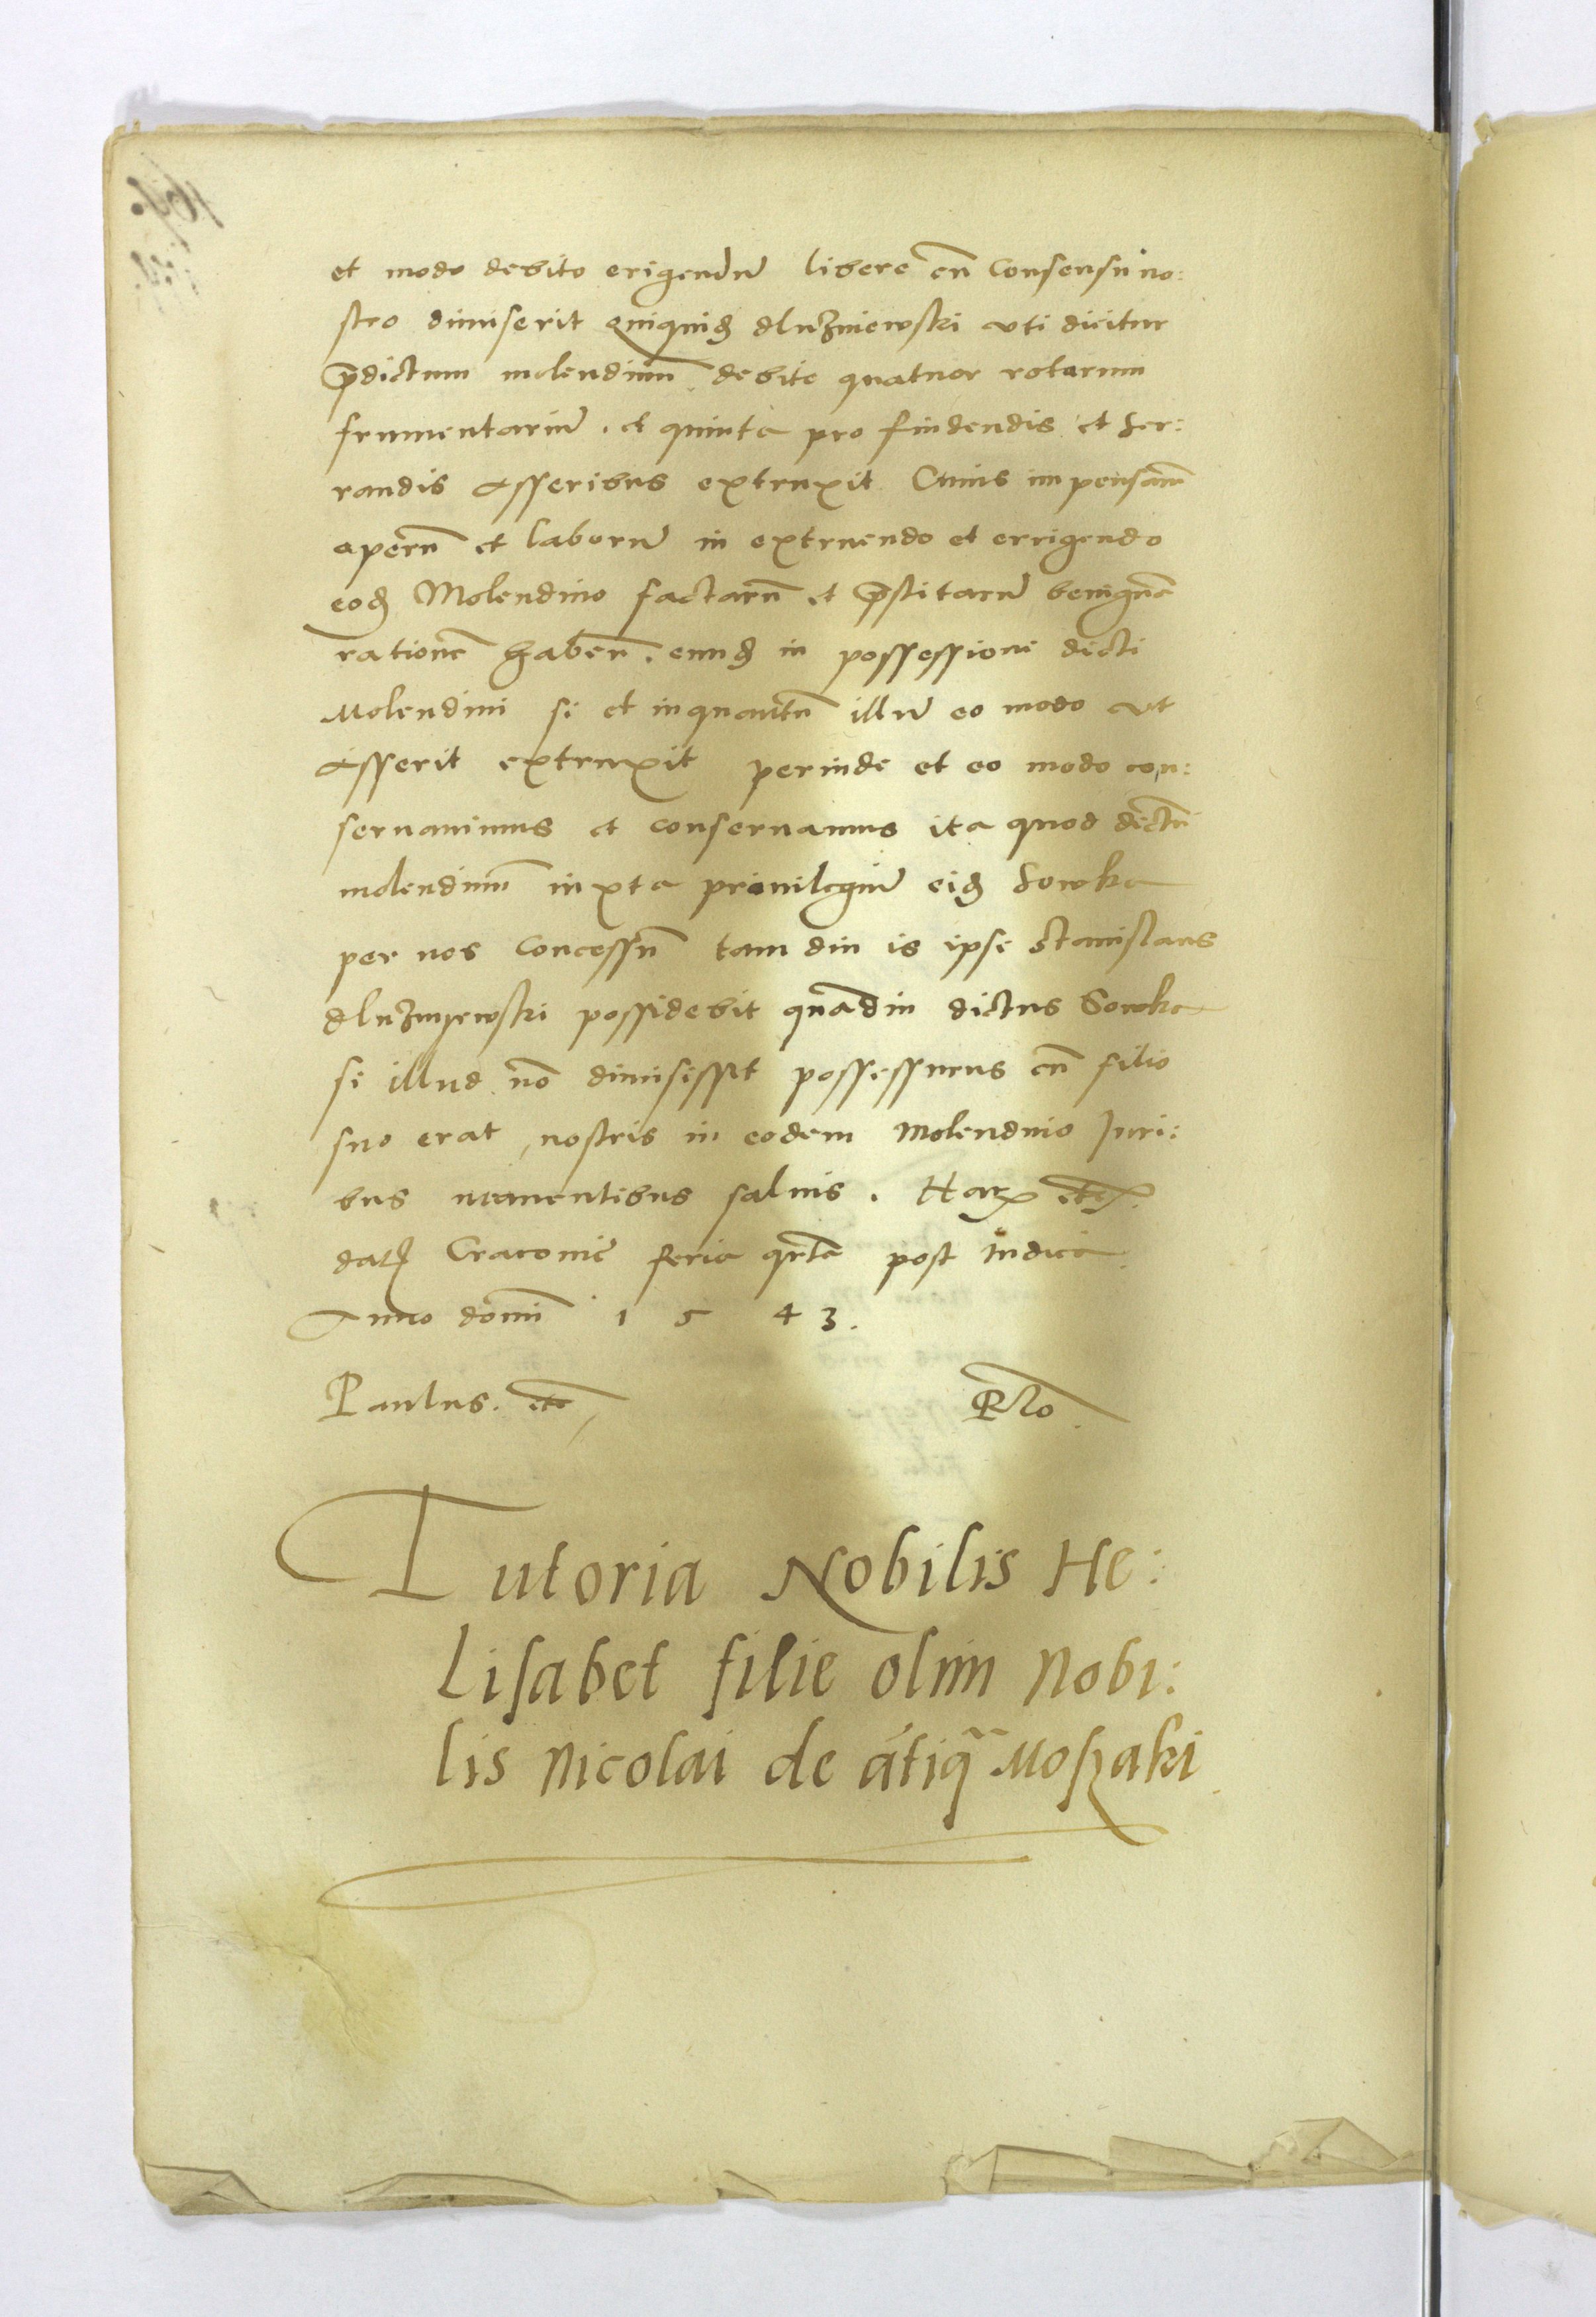 et modo debito erigendũ libere cũ Consensu no:
stro dimiserit quiquid͛ dluzniewski vti dicitur
p̃dictum molendinũ debite quatuor rotarum
frumentariũ . et quinta pro findendis et ser:
randis asseribus extruxit Cuius impensarũ
operũ et laborũ in extruendo et errigendo
eod͛ Molendino factarũ et p̃stitarũ benignã
rationẽ habeñ . eund͛ in possessione dicti
Molendini si et inquantũ illud eo modo vt
asserit extruxit perinde et eo modo con:
seruauimus et conseruamus ita quod dictũ
molendinũ iuxta priuilegiũ eid͛ Sowka
per nos Concessũ tam diu is ipse Stanislaus
dluznyewski possidebit quãdiu dictus Sowka
si illud nõ dimisisset possessurus cũ filio
suo erat , nostris in eodem Molendino Iuri:
bus manentibus saluis . Harꝝ etc.
dat͛ Cracouiẽ feria qrta post Iudica
Anno domĩ 1 5 4 3 .
Paulus . etc
Rlo
Tutoria Nobilis He:
Lisabet filie olim Nobi:
lis Nicolai de ãtiqᷓ Moszaki